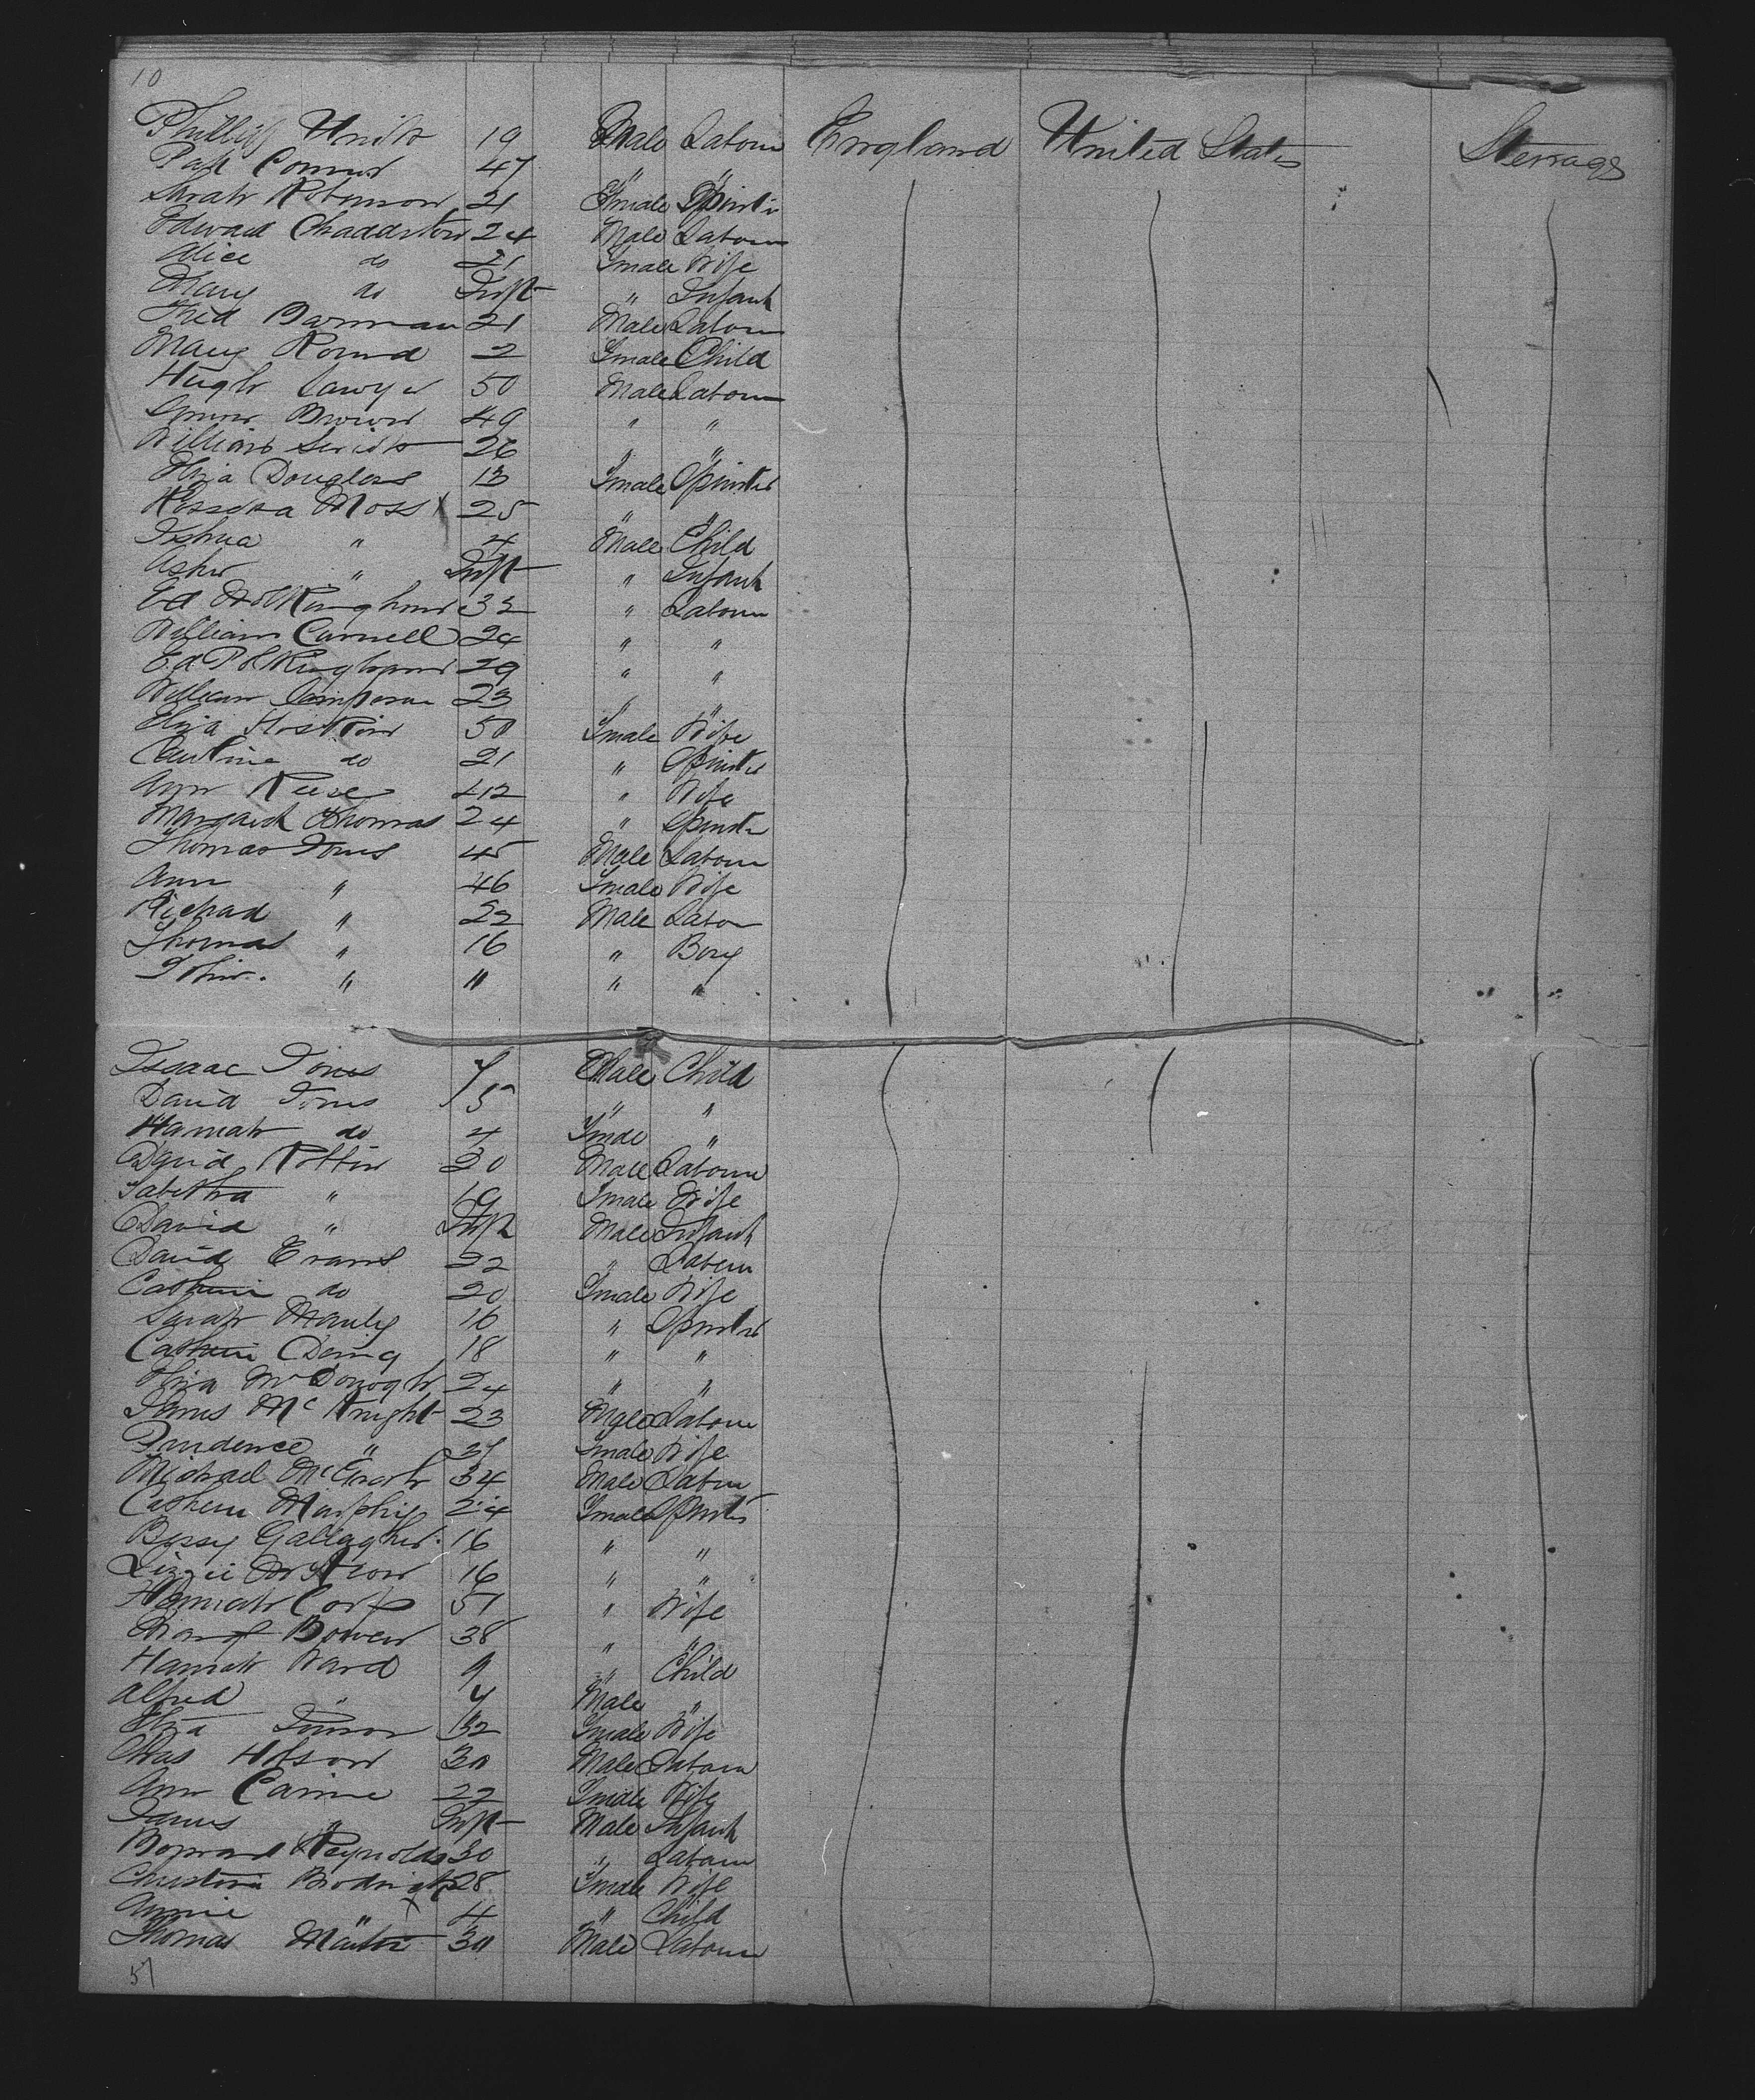 10
Phillip 19 Male Labour England United States Sterrage
Pat Connor 47 " "
Sarah Robinson 21 Female Spinster
Edward Chadderton 24 Male Labour
Alice do 21 Female Wife
Mary do Inft " Infant
Fred Barman 21 Male Labour
Mary Round 2 Female Child
Hugh Sawyer 50 Male Labour
Brown 49 " "
William 26 " "
Eliza Douglass 13 Female Spinster
Moss X 25 " "
Joshua " 4 Male Child
Asher " Inft " Infant
Ed 32 " Labour
William Carnell 24 " "
Ed 29 " "
William 23 " "
Eliza Hoskins 50 Female Wife
Caroline do 21 " Spinster
Ann Reese 42 " Wife
Margaret Thomas 24 " Spinster
Thomas Jones 45 Male Labour
Ann " 46 Female Wife
Richard " 22 Male Labour
Thomas " 16 " Boy
John " 11 " "
Isaac Jones 7 Male Child
David Jones 5 " "
Hannah do 4 Female "
David 20 Male Labour
Tabitha " 19 Female Wife
David " Inft Male Infant
David Evans 22 " Labour
Catherine do 20 Female Wife
Sarah Manley 16 " Spinster
Catherine 18 " "
Eliza McDonogh 24 " "
James McKnight 23 Male Labour
Prudence " 37 Female Wife
Michael McGrath 34 Male Labour
Catherine Murphy 24 Female Spinster
Bessy Gallagher 16 " "
Lizzie 16 " "
Hannah 51 " Wife
Bowen 38 " "
Hannah Ward 9 " Child
Alfred " 7 Male "
Eliza 32 Female Wife
Chas Hobson 30 Male Labour
Ann 22 Female Wife
James " Inft Male Infant
Reynolds 30 " Labour
28 Female Wife
Annie " 4 " Child
Thomas Martin 30 Male Labour
57